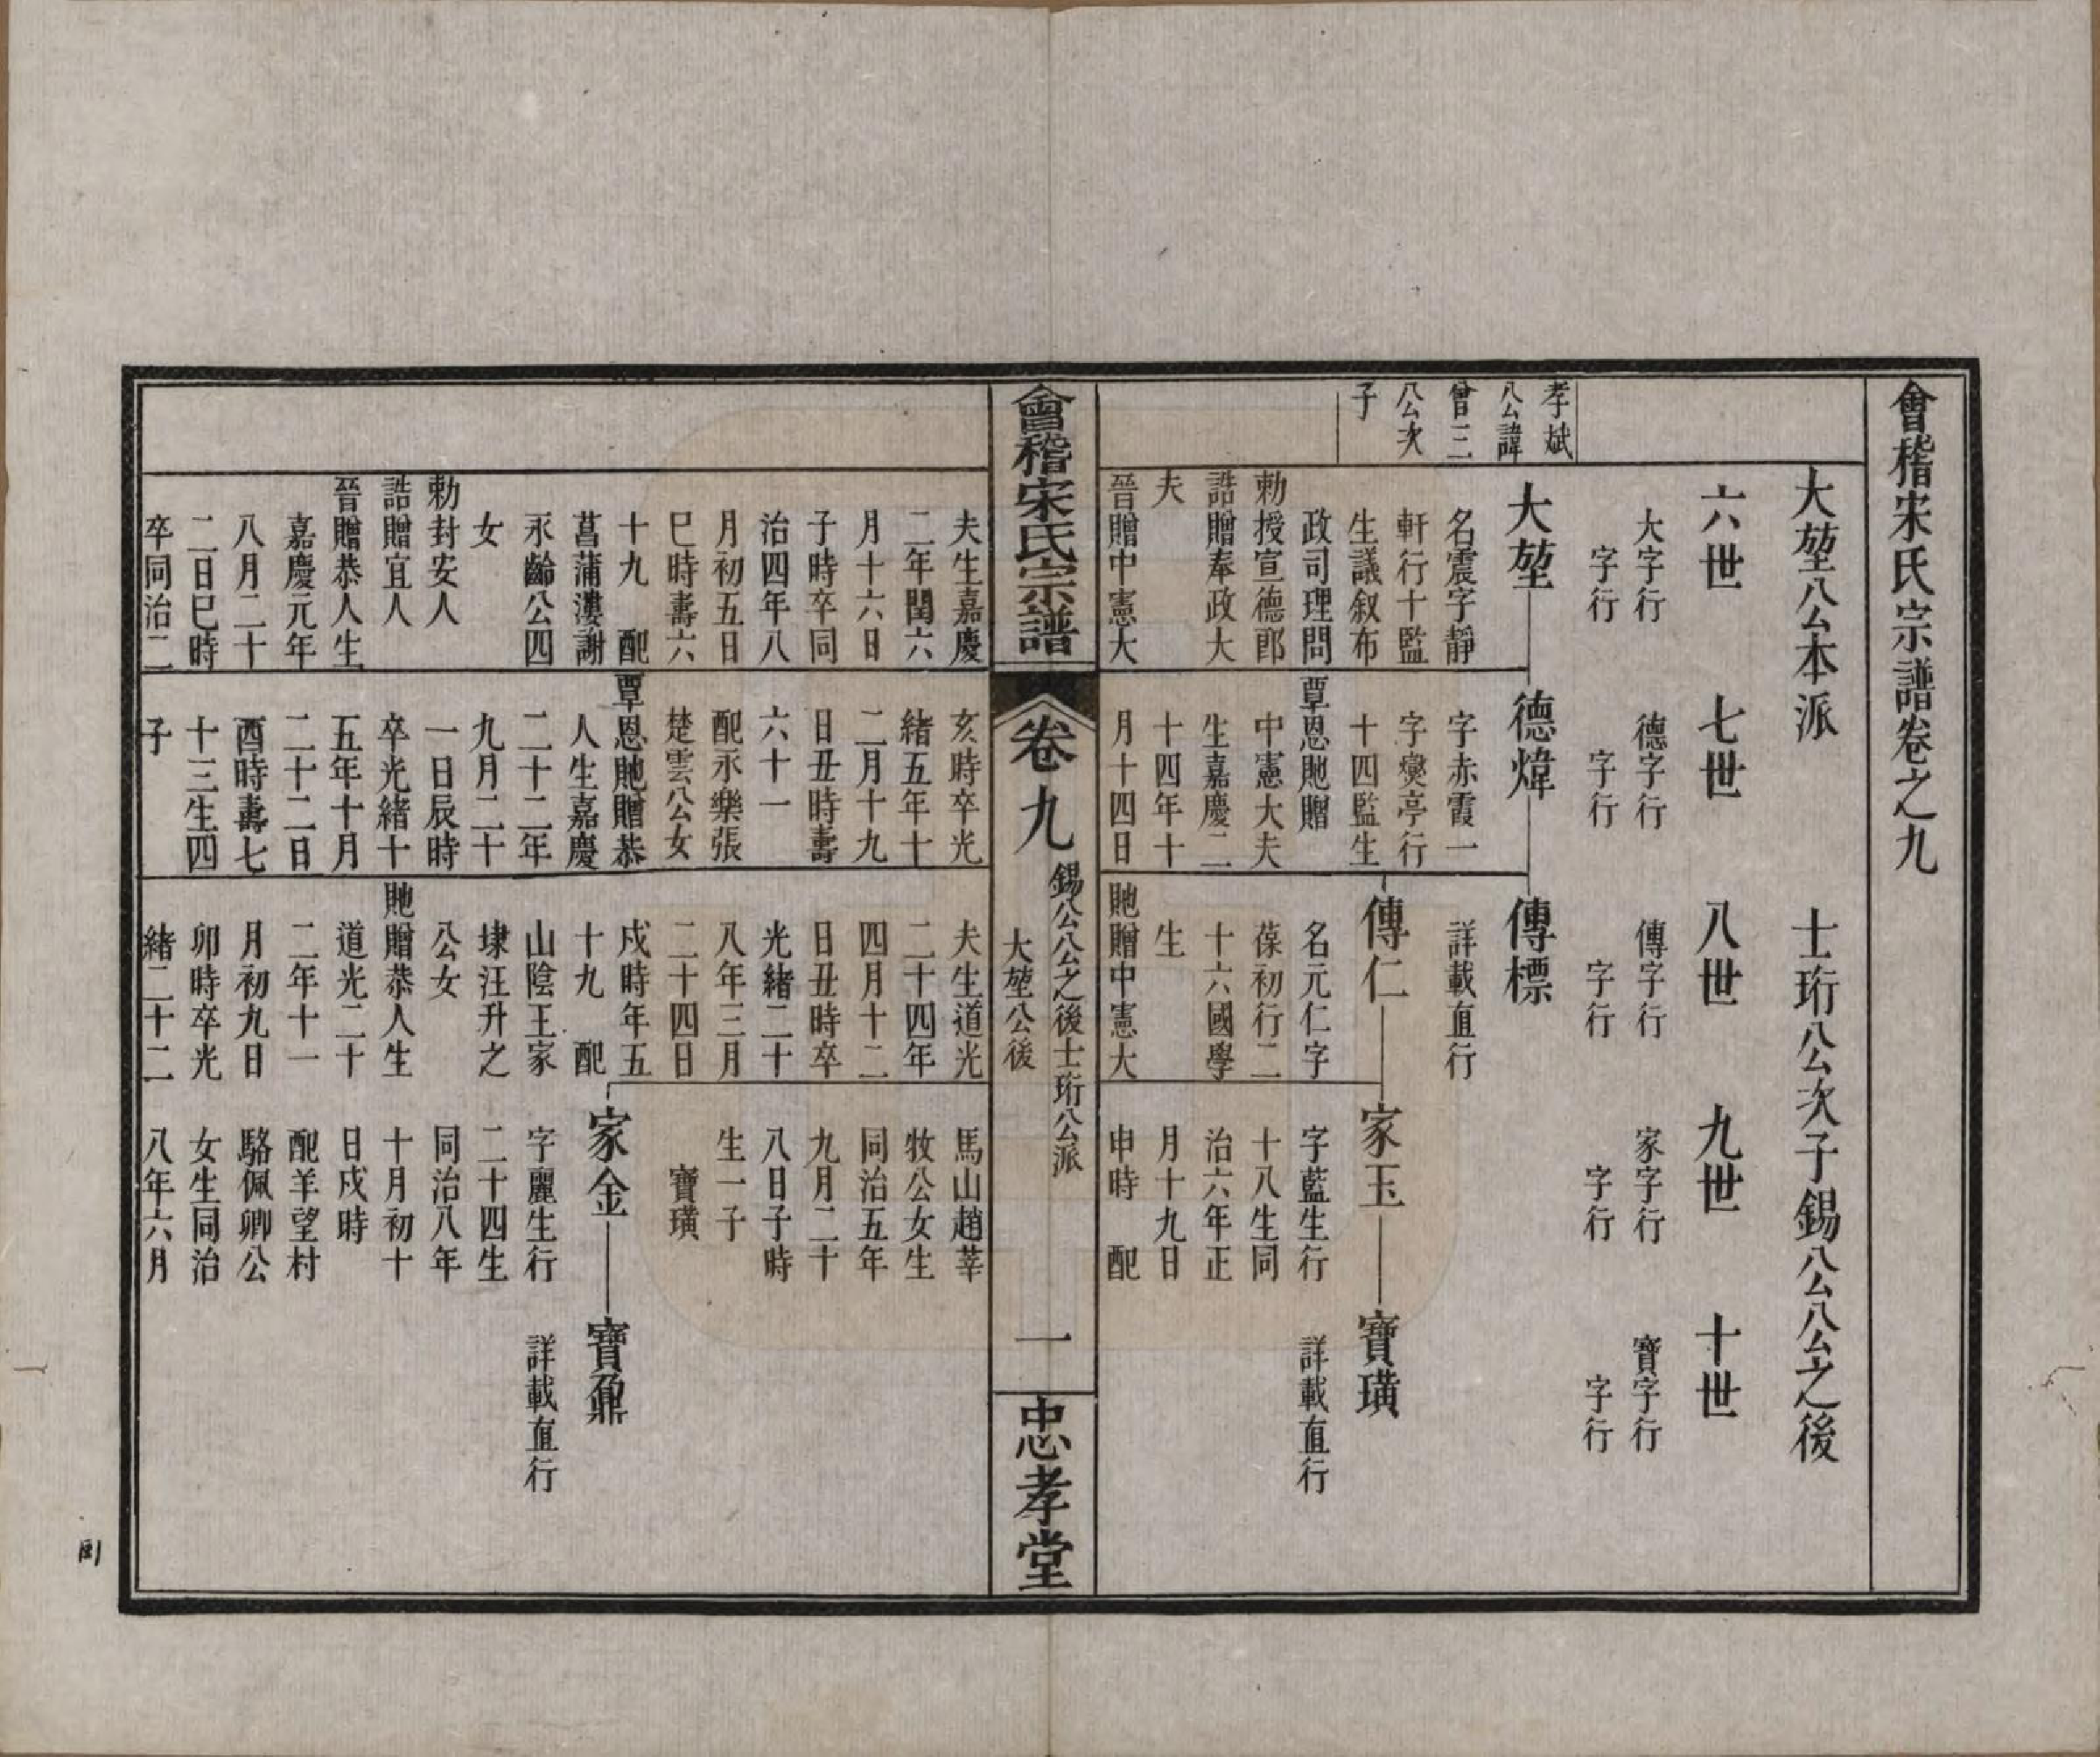 會稽宋氏宗譜卷之九
大堃公本派
士珩公次子錫公公之後
六世
七世
八世
九世
十世
大字行
德字行
傳字行
家字行
寶字行
字行
字行
字行
字行
字行
孝斌
公諱
曾三
公次
子
大堃
名震字靜
軒行十監
生議叙布
政司理問
勅授宣德郎
誥贈奉政大
夫
晉贈中憲大
德煒
字赤霞一
字爕亭行
十四監生
覃恩貤贈
中憲大夫
生嘉慶二
十四年十
月十四日
傳標
詳載直行
傳仁
名元仁字
葆初行二
十六國學
生
貤贈中憲大
家玉
字藍生行
十八生同
治六年正
月十九日
申時 配
寶璜
詳載直行
會稽宋氏宗譜
卷九
錫公公之後士珩公派
大堃公後
一
忠孝堂
夫生嘉慶
二年閏六
月十六日
子時卒同
治四年八
月初五日
巳時壽六
十九 配
菖蒲漊謝
永齡公四
女
勅封安人
誥贈宜人
晉贈恭人生
嘉慶元年
八月二十
二日巳時
卒同治二
亥時卒光
緒五年十
二月十九
日丑時壽
六十一
配永樂張
楚雲公女
覃恩貤贈恭
人生嘉慶
二十二年
九月二十
一日辰時
卒光緒十
五年十月
二十二日
酉時壽七
十三生四
子
夫生道光
二十四年
四月十二
日丑時卒
光緒二十
八年三月
二十四日
戍時年五
十九 配
山陰王家
埭汪升之
公女
貤贈恭人生
道光二十
二年十一
月初九日
卯時卒光
緒二十二
馬山趙莘
牧公女生
同治五年
九月二十
八日子時
生一子
寶璜
家金
字麗生行
二十四生
同治八年
十月初十
日戍時
配羊望村
駱佩卿公
女生同治
八年六月
寶鼐
詳載直行